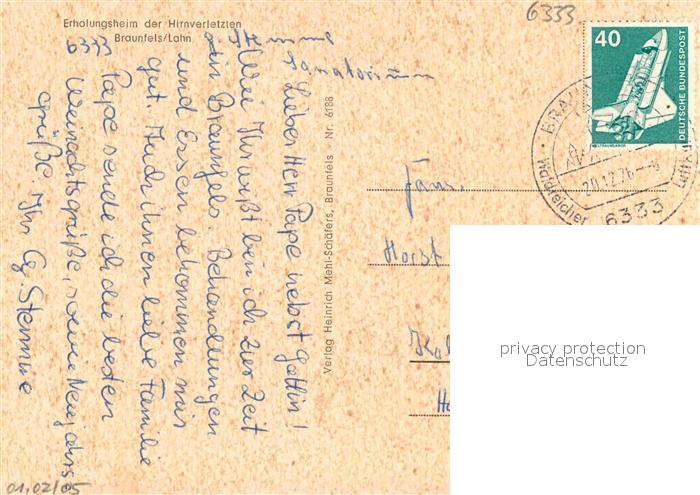 Erholungsheim der Hirnverletzten
Braunfels/Lahn
6333
Sanatorium
Lieber Herr Pape nebst Gattin!
Wie Ihr wißt bin ich zur Zeit
in Braunfels. Behandlungen
und Essen bekommen mir
gut. Auch ihnen liebe Familie
Pape sende ich die besten
Weihnachtsgrüße, sowie Neujahrs
grüße Ihr
Verlag Heinrich Mehl-Schäfers, Braunfels Nr. 6188
6333
40
DEUTSCHE BUNDESPOST
WELTRAUMLABOR
BRAU
20.12.76
Waldreicher
Luftk
6333
Fam.
Horst
privacy protection
Datenschutz
01.02/05